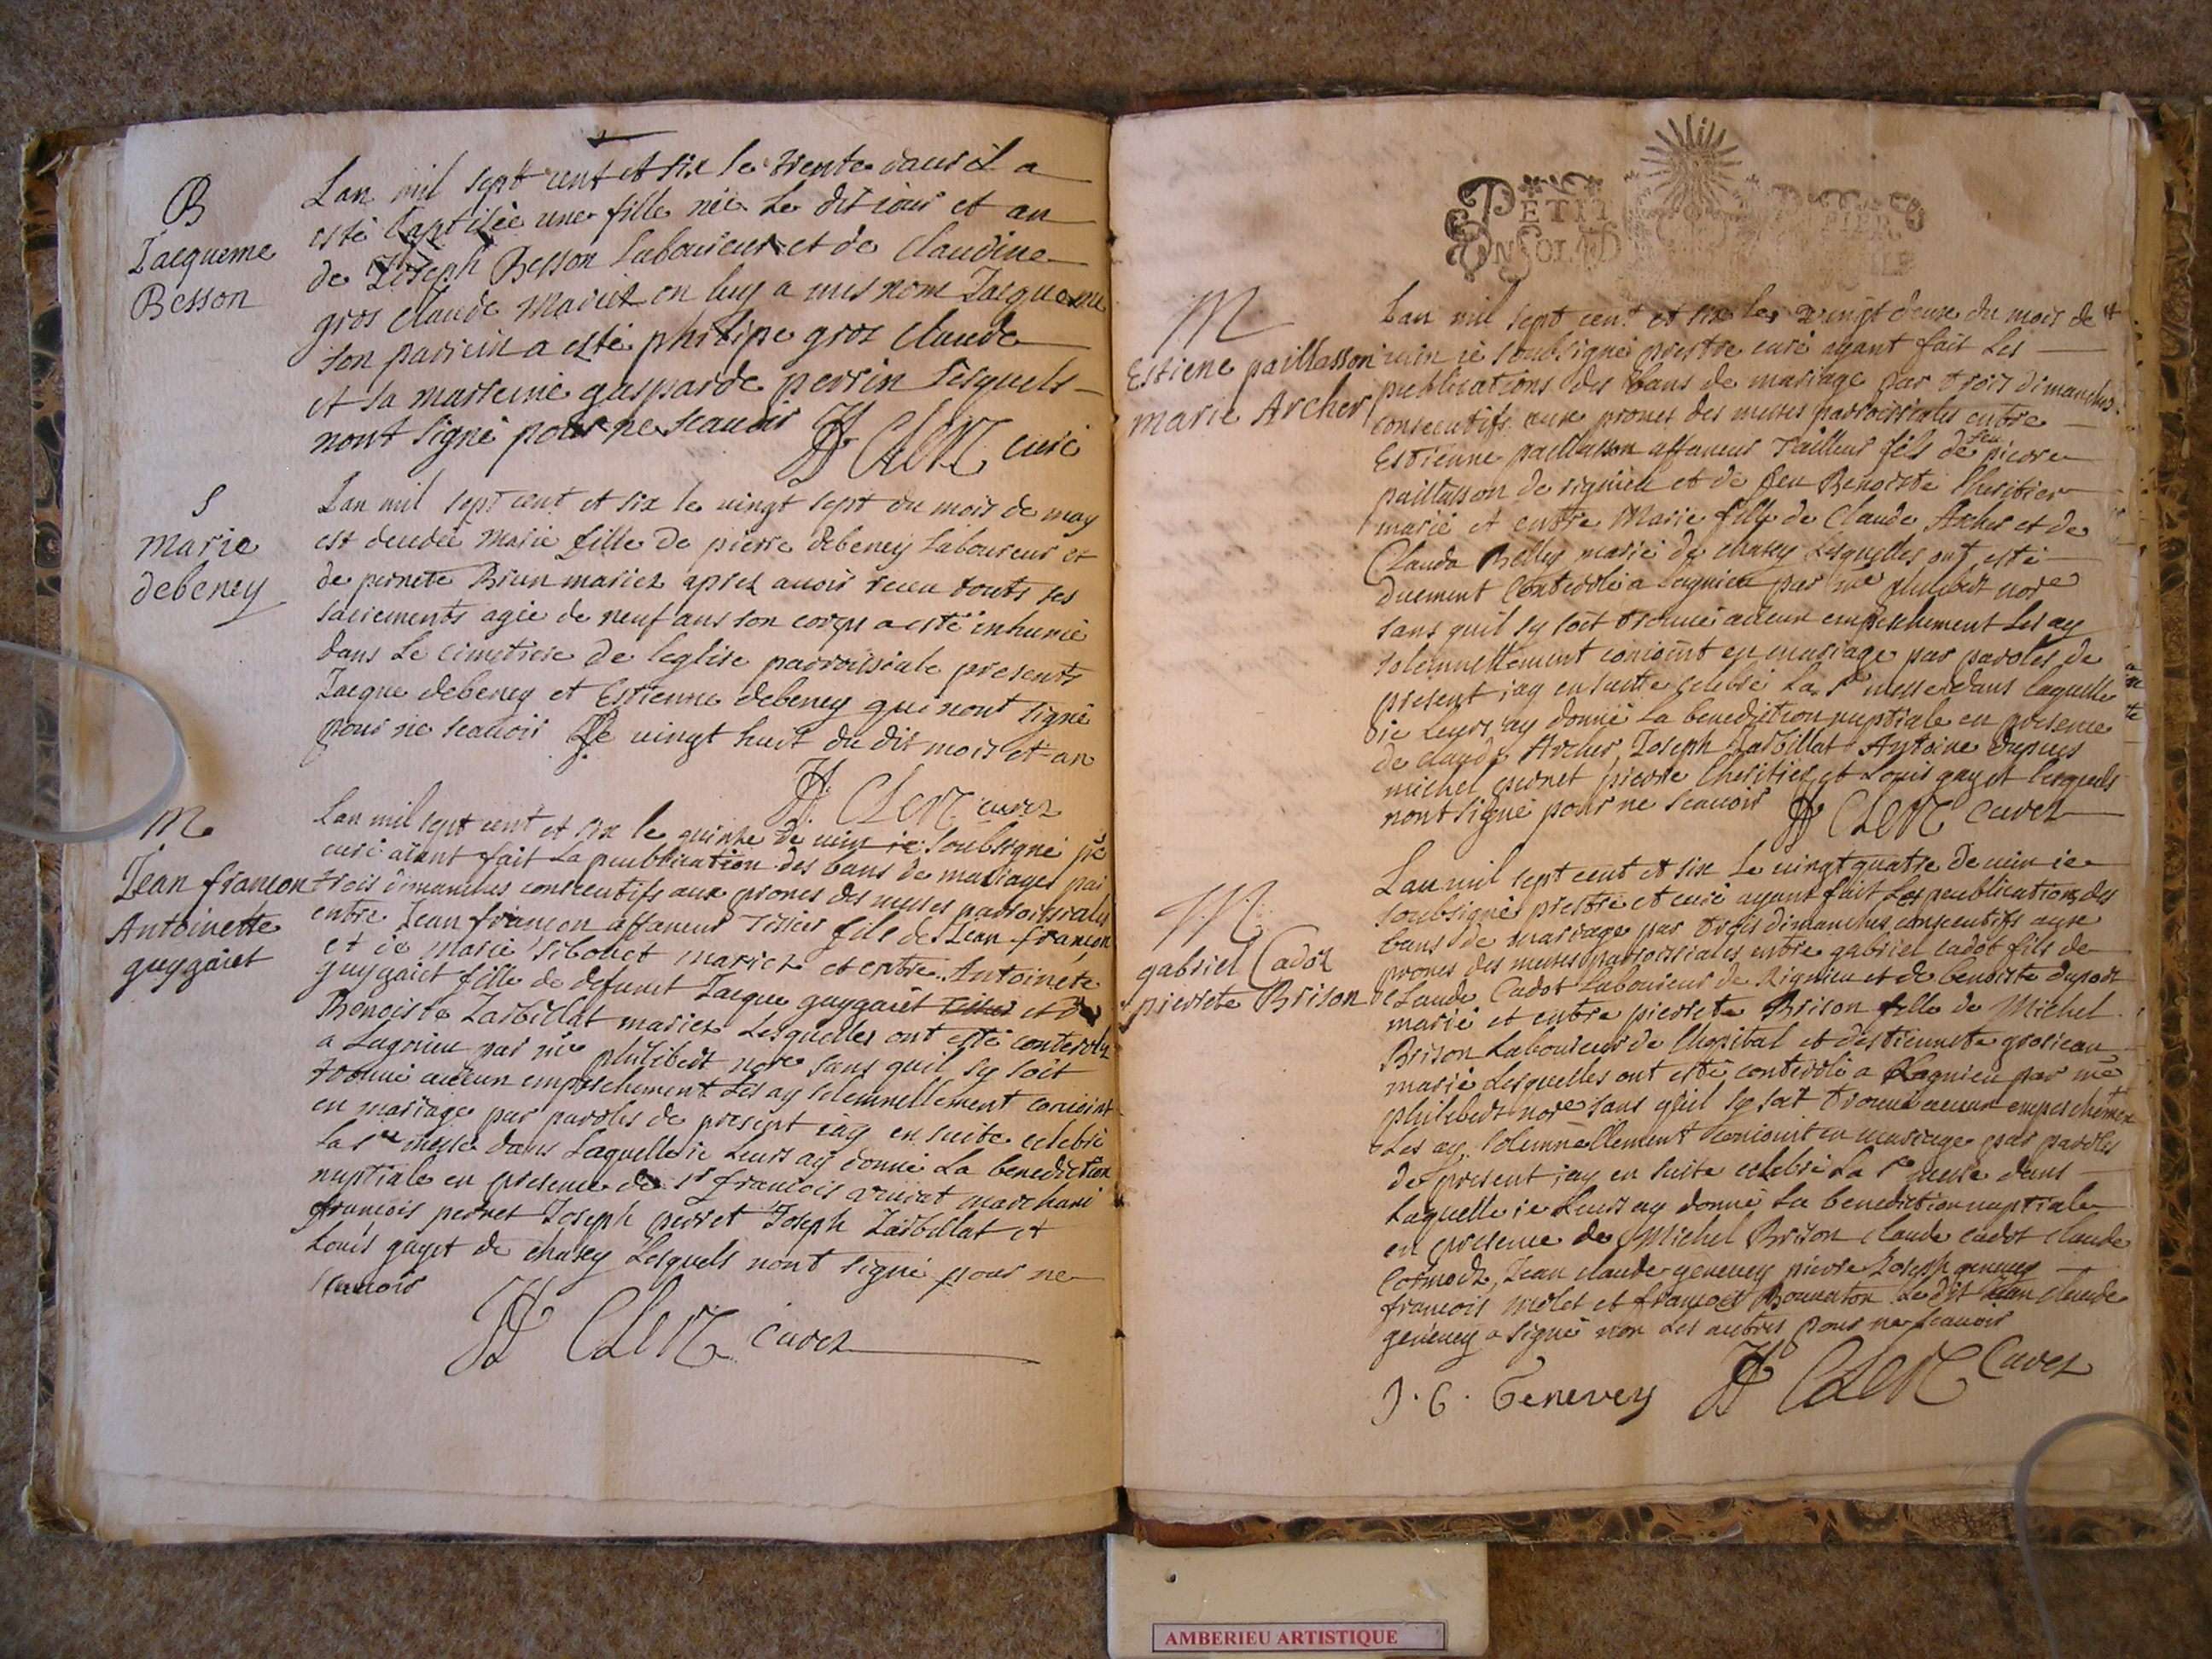 B
Jacqueme
Besson
Lan mil sept cent et six le trente dauril a
esté baptisée une fille née le dit iour et an
de Joseph Besson laboureur et de Claudine
gros Claude mariez on luy a mis nom Jacqueme
son parrein a esté philipe gros claude
et sa marreine gasparde perrin lesquels
nont signé pour ne scauoir H CLERC curé
S
marie
debeney
Lan mil sept cent et six le uingt sept du mois de may
est decedée Marie fille de pierre debeney laboureur et
de pernete Brun mariez aprez auoir receu touts ses
sacrements agée de neuf ans son corps a esté inhumé
dans le cimetiere de leglise parroissiale presents
Jacque debeney et Estienne debeney qui nont signé
pour ne scauoir le uingt huit du dit mois et an
H. CLERC curez
M
Jean françon
Antoinette
guygaret
Lan mil sept cent et six le quinze de iuin ie soubsigné pre
curé aiant fait la peublication des bans de mariages par
trois dimanches consecutifs aux prones des messes parroissiales
entre Jean françon affaneur tissier fils de Jean françon
et de Marie sibouet mariez et entre Antoinete
guygaret fille de defunct Jacque guygaret et de
Benoiste Jarbillat mariez lesquelles ont esté conterolé
a Lagnieu par me philibert nore sans quil sy soit
trouué aucun empeschement les ay solemnellement conioint
en mariage par paroles de present iay en suite celebré
la ste messe dans laquelle ie leurs ay donné la benediction
nuptiale en presence de sr françois marchand
françois pernet Joseph perret Joseph Jarbillat et
Louis gayet de chasey lesquels nont signé pour ne
scauoir
H CLERC curez
PETIT PAPIER
UN SOL
M
Estiene paillasson
marie Archer
Lan mil sept cent et six le uingt deux du mois de
iuin ie soubsigné prestre curé ayant fait les
peublications des bans de mariage par trois dimanches
consecutifs aux prones des messes parroissiales entre
Estienne paillasson affaneur tailleur fils de feu pierre
paillasson de rignieu et de feu Benoiste lheritier
marié et entre Marie fille de Claude Archer et de
Clauda Belley marié de chasey lesquelles ont esté
duement conterolé a lagnieu par me philibert nore
sans quil sy soit trouué aucun empeschement les ay
solemnellement conioint en mariage par paroles de
present iay en suitte celebré la ste messe dans laquelle
ie leurs ay donné la benediction nuptiale en presence
de claude Archer, Joseph Jarbillat Antoine dupuis
michel pernet pierre lheritier et Louis gayet lesquels
nont signé pour ne scauoir H CLERC curez
M
gabriel Cadot
pierrete Brison
Lan mil sept cent et six le uingt quatre de iuin ie
soubsigné prestre et curé ayant fait les peublications des
bans de mariage par trois dimanches consecutifs aux
prones des messes parroissiales entre gabriel cadot fils de
Claude Cadot laboureur de Rignieu et de benoiste duport
marié et entre pierrete Brison fille de Michel
Brison laboureur de lhopital et destiennete grosieau
marié lesquelles ont esté conterolé a Lagnieu par me
philibert nore sans quil sy soit trouué aucun empeschement
les ay solemnellement conioint en mariage par paroles
de present iay en suite celebré la ste messe dans
laquelle ie leurs ay donné la benediction nuptiale
en presence de Michel Brison claude cadot claude
Cormod, Jean claude geneuey pierre Joseph geneuey
françois molet et françois Bonnaton le dit Jean claude
geneuey a signé non les autres pour ne scauoir
J. C. Genevey H CLERC Curez
AMBERIEU ARTISTIQUE